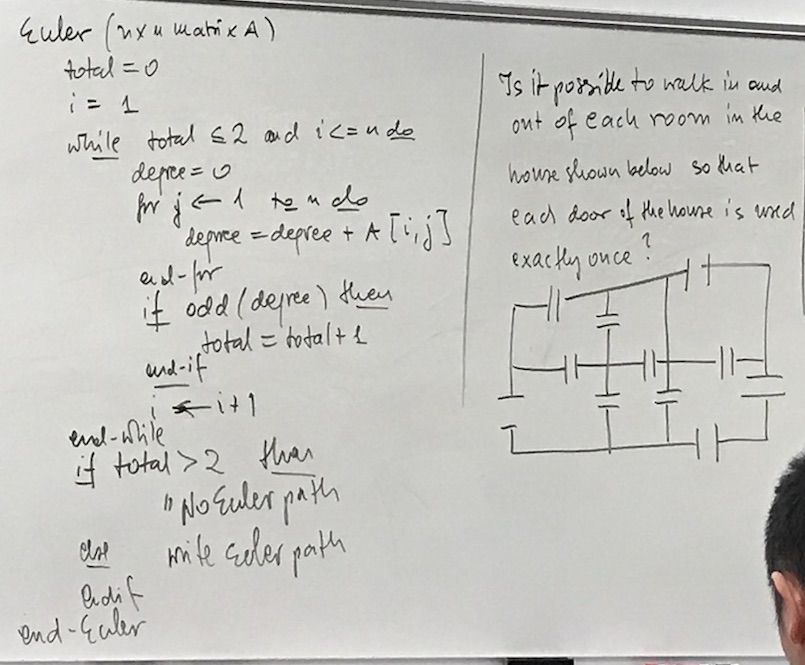 Euler (nxn matrix A)
total = 0
i = 1
while total ≤ 2 and i <= n do
degree = 0
for j ← 1 to n do
degree = degree + A [i,j]
end-for
if odd (degree) then
total = total + 1
end-if
i ← i + 1
end-while
if total > 2 then
" No Euler path
else write Euler path
endif
end-Euler
Is it possible to walk in and
out of each room in the
house shown below so that
each door of the house is used
exactly once?